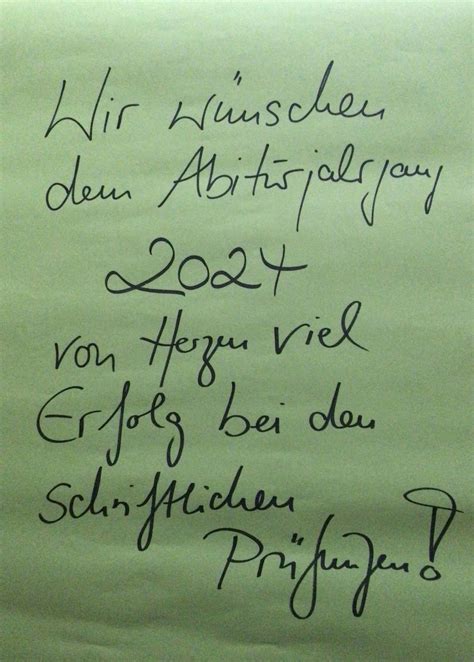 Wir wünschen
dem Abiturjahrgang
2024
von Herzen viel
Erfolg bei den
schriftlichen
Prüfungen!